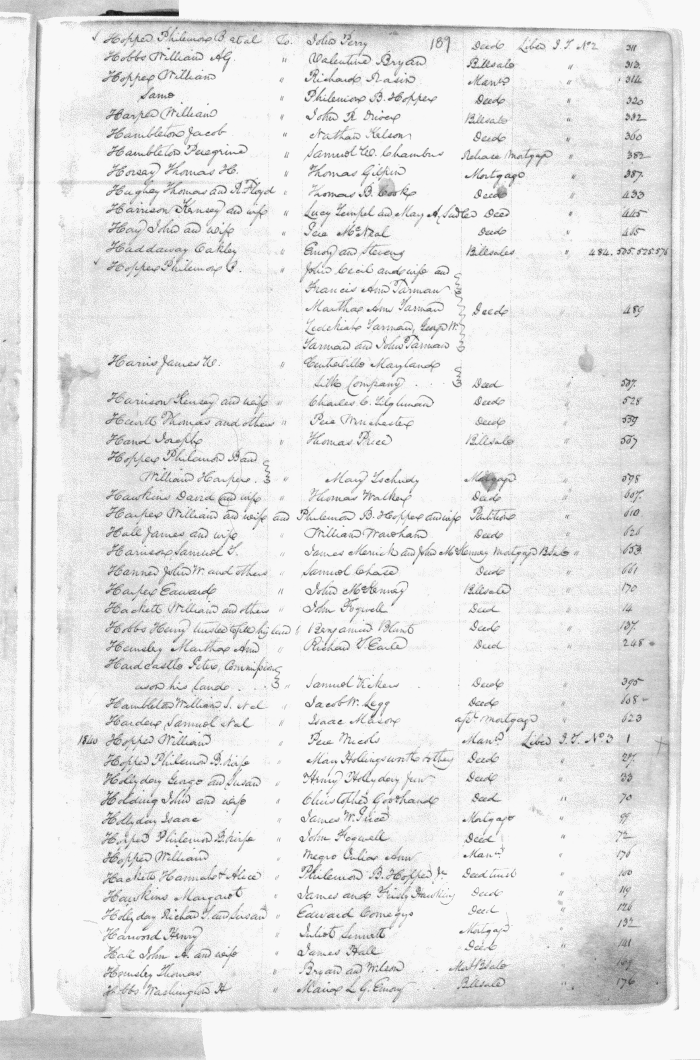 189
Hopper Philemon B. et al To John Perry Deed Liber J.T. No 2 311
Hobbs William AG. " Valentine Bryan Billsale " 312
Hopper William " Richard Rasin Manu " 314
Same " Philemon B. Hopper Deed " 320
Harper William " John R Driver Billsale " 332
Hambleton Jacob " Nathan Nelson Deed " 360
Hambleton Peregrine " Samuel W. Chambers Release Mortgage " 382
Horsey Thomas H. " Thomas Gilpin Mortgage " 387
Hughey Thomas and R Floyd " Thomas B. Cooke Deed " 433
Harrison Kensey and wife " Lucy Tempel and May A. Sudler Deed " 445
Hay John and wife " Pere McNeal Deed " 465
Haddaway Oakley " Emory and Stevens Billsales " 484. 575. 575. 576
Hopper Philemon B. " John Cecil and wife and
Francis Ann Tarman
Martha Ann Tarman Deed " 489
Zedekiah Tarman, George W.
Tarman and John Tarman
Harris James H. " Centreville Maryland
Silk Company Deed " 507
Harrison Kensey and wife " Charles C. Tilghman Deed " 528
Hewitt Thomas and others " Pere Winchester Deed " 539
Hand Joseph " Thomas Price Billsale " 557
Hopper Philemon B and
William Harper " Mary Tschudy Mortgage " 598
Hawkins David and wife " Thomas Walker Deed " 607
Harper William and wife and Philemon B. Hopper and wife Partition " 610
Hall James and wife " William Wareham Deed " 626
Harrison Samuel T. " James Merrick and John McKenney Mortgage Bsale " 653
Hanner John W. and others " Samuel Chase Deed " 661
Harper Edward " John McKenney Billsale " 170
Hackett William and others " John Fogwell Deed " 14
Hobbs Henry " Benjamin Blunt Deed " 137
Hemsley Martha Ann " Richard T. Earle Deed " 248
Hardcastle Peter, Commissioner
upon his lands " Samuel Vickers Deed " 395
Hambleton William S. et al " Jacob W. Legg Deed " 608
Harden Samuel et al " Isaac Mason Mortgage " 623
1840 Hopper William " Pere Meeds Manu Liber J.T. No 3 1
Hopper Philemon B. & wife " Mary Hollingsworth & others Deed " 27
Hollyday George and Susan " Henry Hollyday Jun Deed " 33
Holding John and wife " Christopher Goodhand Deed " 70
Hollyday Isaac " James W. Price Mortgage "
Hopper Philemon B. & wife " John Fogwell Deed " 72
Hopper William " Negro Ann Manu " 176
Hackett Hannah & Alice " Philemon B. Hopper Jr Deed trust " 100
Hawkins Margaret " James and Hawkins Deed " 119
Hollyday Richard T. and Susan " Edward Comegys Deed " 126
Harwood Henry " Juliet Sennett Mortgage " 132
Hall John A. and wife " James Hall Deed " 141
Hemsley Thomas " Bryan and Wilson Mort Bsale "
Hobbs Washington H " Maria L G. Emory Billsale " 176